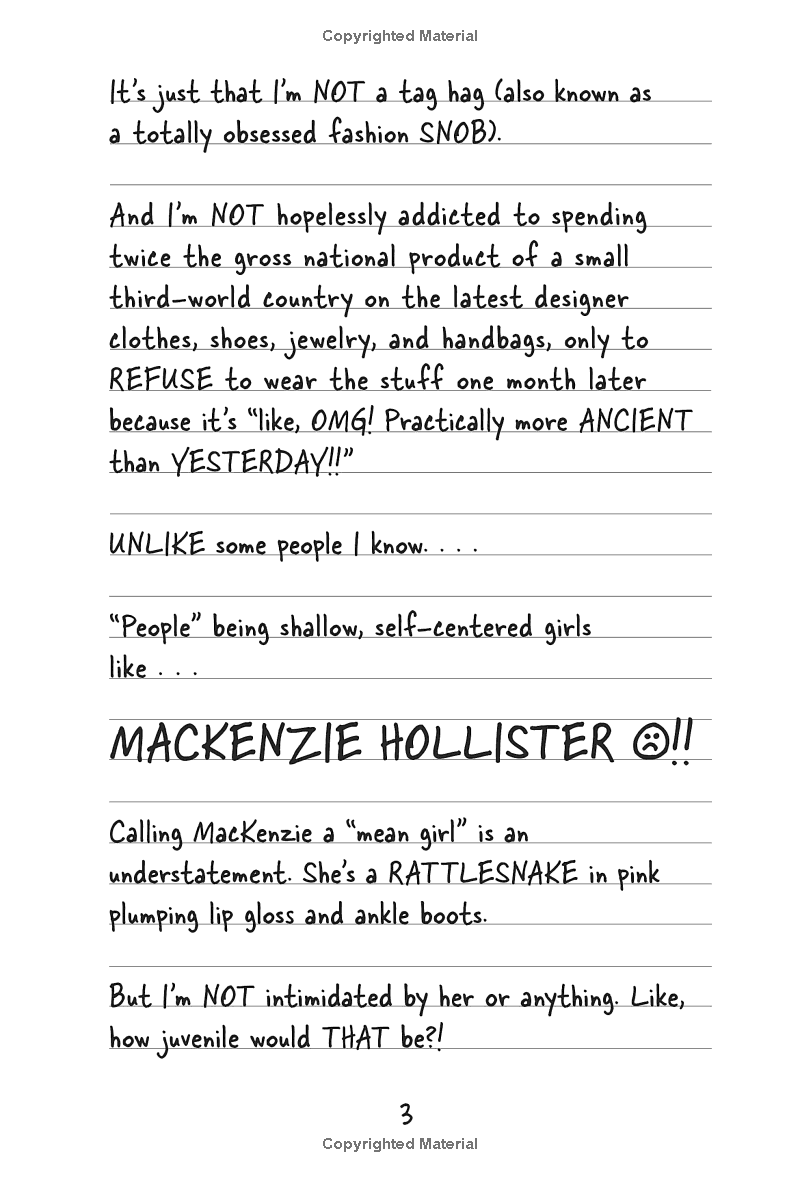 Copyrighted Material
It's just that I'm NOT a tag hag (also known as
a totally obsessed fashion SNOB).
And I'm NOT hopelessly addicted to spending
twice the gross national product of a small
third-world country on the latest designer
clothes, shoes, jewelry, and handbags, only to
REFUSE to wear the stuff one month later
because it's “like, OMG! Practically more ANCIENT
than YESTERDAY!!”
UNLIKE some people I know. . . .
“People” being shallow, self-centered girls
like . . .
MACKENZIE HOLLISTER ☹!!
Calling MacKenzie a “mean girl” is an
understatement. She's a RATTLESNAKE in pink
plumping lip gloss and ankle boots.
But I'm NOT intimidated by her or anything. Like,
how juvenile would THAT be?!
3
Copyrighted Material